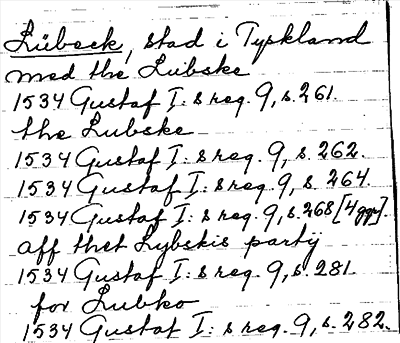 Lübeck, stad i Tyskland
med the Lübske
1534 Gustaf I:s reg. 9, s. 261.
the Lubske
1534 Gustaf I:s reg. 9, s. 262.
1534 Gustaf I:s reg. 9, s. 264.
1534 Gustaf I:s reg. 9, s. 268 [4 ggr].
aff thet Lybskis partij
1534 Gustaf I:s reg. 9, s. 281
for Lubko
1534 Gustaf I:s reg. 9, s. 282.